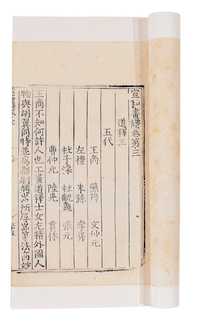 宣和畫譜卷第三
道釋三
五代
王商　燕筠　支仲元
左禮　朱繇　李昇
杜子瓌　杜齯龜　張元
曹仲元　陸晃　貫休
王商不知何許人也工畫道釋士女尤精外國人
物與胡翼同時並為都尉